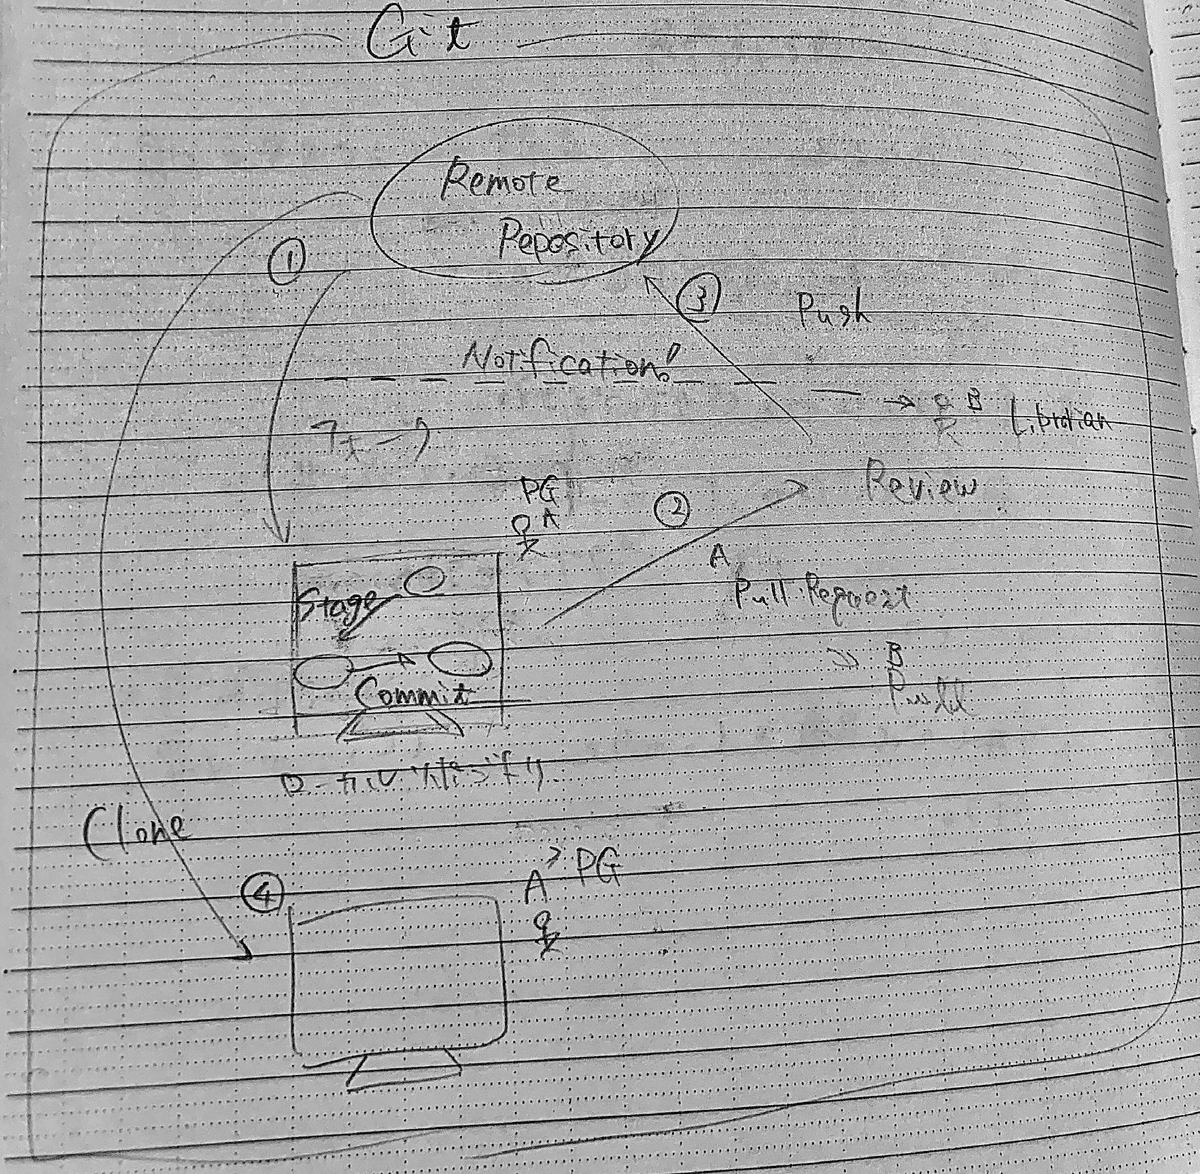 Git
Remote
Repository
①
③
Push
Notification!
B
Librarian
PG
A
②
Review
A
Pull Request
Stage
B
Commit
ローカルリポジトリ
Clone
④
A
PG